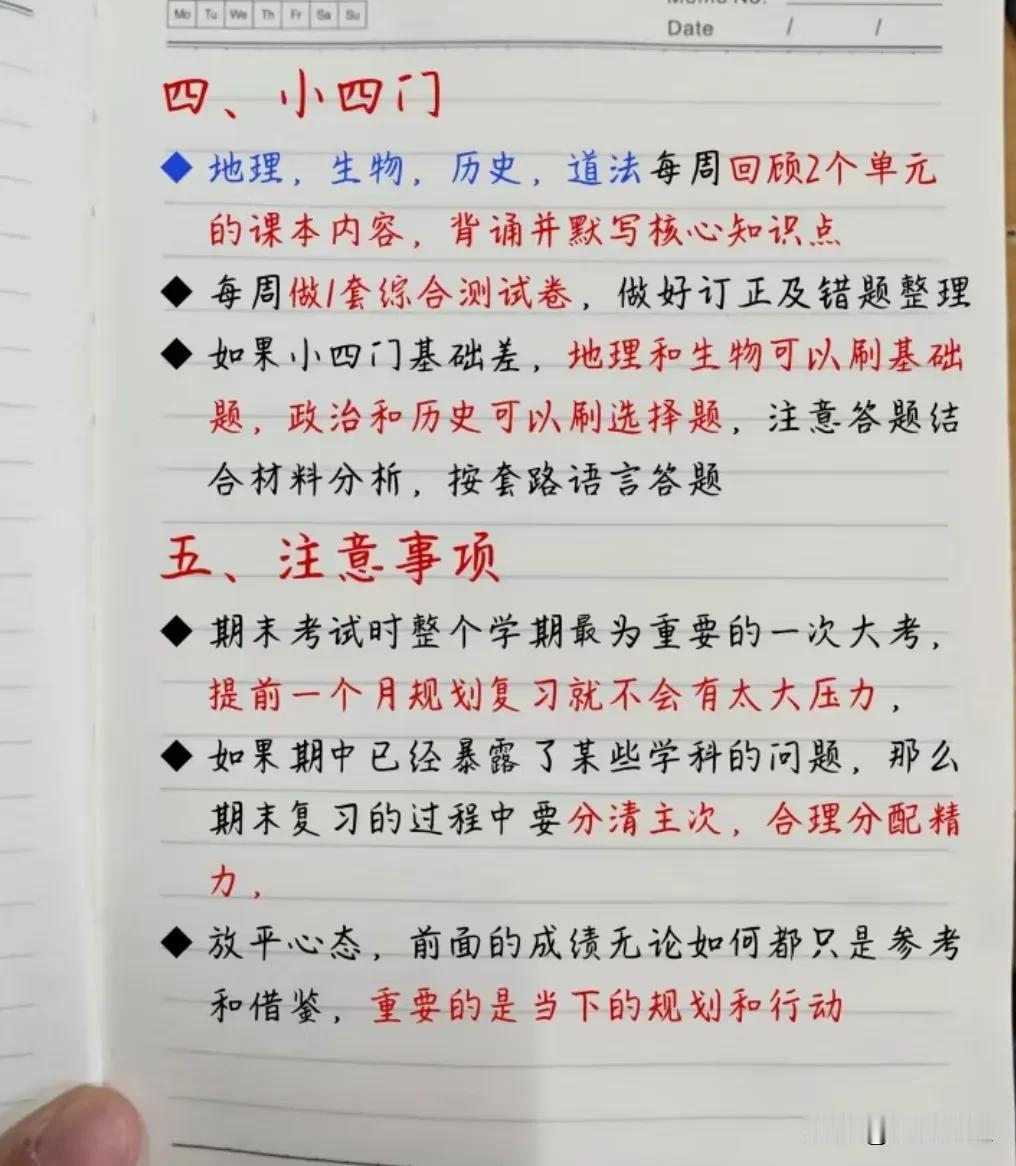 Mo Tu We Th Fr Sa Su
Memo No.
Date / /
四、小四门
◆ 地理，生物，历史，道法每周回顾2个单元
的课本内容，背诵并默写核心知识点
◆ 每周做1套综合测试卷，做好订正及错题整理
◆ 如果小四门基础差，地理和生物可以刷基础
题，政治和历史可以刷选择题，注意答题结
合材料分析，按套路语言答题
五、注意事项
◆ 期末考试时整个学期最为重要的一次大考，
提前一个月规划复习就不会有太大压力，
◆ 如果期中已经暴露了某些学科的问题，那么
期末复习的过程中要分清主次，合理分配精
力，
◆ 放平心态，前面的成绩无论如何都只是参考
和借鉴，重要的是当下的规划和行动